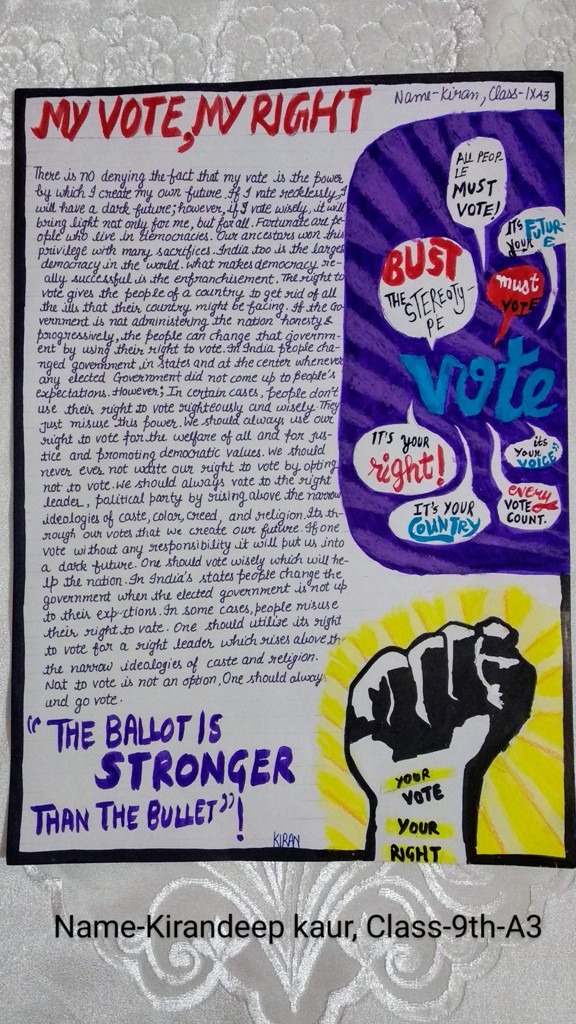 MY VOTE, MY RIGHT
Name-Kiran, Class-IXA3
There is no denying the fact that my vote is the power
by which I create my own future. If I vote recklessly, I
will have a dark future; however, if I vote wisely, it will
bring light not only for me, but for all. Fortunate are pe-
ople who live in democracies. Our ancestors won this
privilege with many sacrifices. India too is the larges
democracy in the world. What makes democracy re-
ally successful is the enfranchisement. The right to
vote gives the people of a country to get rid of all
the ills that their country might be facing. If the Go-
vernment is not administering the nation honesty &
progressively, the people can change that governm-
ent by using their right to vote. In India people cha-
nged government in states and at the center whenever
any elected Government did not come up to people's
expectations. However; In certain cases, people don't
use their right to vote righteously and wisely. They
just misuse this power. We should always use our
right to vote for the welfare of all and for jus-
tice and promoting democratic values. We should
never ever not waste our right to vote by opting
not to vote. We should always vote to the right
leader, political party by rising above the narrow
ideologies of caste, color, creed, and religion. Its th-
rough our votes that we create our future. If one
vote without any responsibility it will put us into
a dark future. One should vote wisely which will he-
lp the nation. In India's states people change the
government when the elected government is not up
to their exp-ctions. In some cases, people misuse
their right to vote. One should utilise its right
to vote for a right leader which rises above the
the narrow ideologies of caste and religion.
Not to vote is not an option. One should always
und go vote.
"THE BALLOT IS
STRONGER
THAN THE BULLET"!
KIRAN
ALL PEOP
LE
MUST
VOTE!
IT'S
your FUTUR-
E
BUST
THE STEREOTY-
PE
must
VOTE
vote
IT'S YOUR
right!
its
YOUR
VOICE"
IT'S YOUR
COUNTRY
every
VOTE
COUNT.
YOUR
VOTE
YOUR
RIGHT
Name-Kirandeep kaur, Class-9th-A3